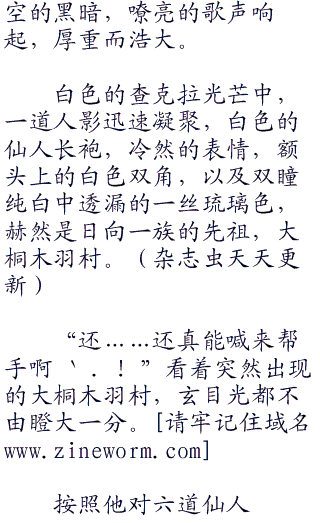 空的黑暗，嘹亮的歌声响
起，厚重而浩大。
白色的查克拉光芒中，
一道人影迅速凝聚，白色的
仙人长袍，冷然的表情，额
头上的白色双角，以及双瞳
纯白中透漏的一丝琉璃色，
赫然是日向一族的先祖，大
桐木羽村。（杂志虫天天更
新）
“还……还真能喊来帮
手啊｀．！”看着突然出现
的大桐木羽村，玄目光都不
由瞪大一分。[请牢记住域名
www.zineworm.com]
按照他对六道仙人